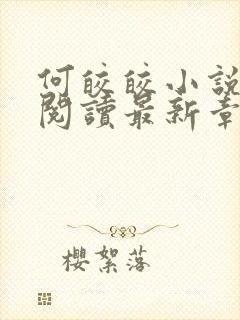 何皎皎小說
閱讀最新章
櫻絮落